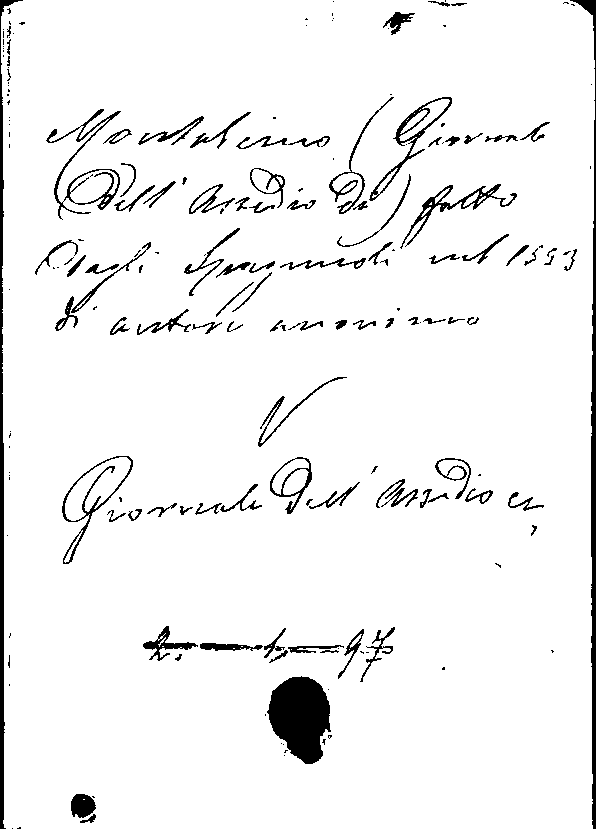 Montalcino (Giornale
Dell' Assedio Di) fatto
Dagli Spagnuoli nel 1553
di autore anonimo
V
Giornale Dell' Assedio ec,
2. 1. 97